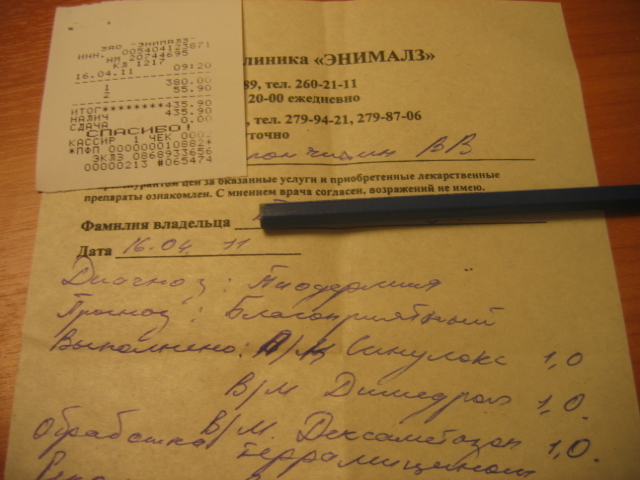 ЗАО "ЭНИМАЛЗ"
ИНН. 005404123871
НМ 20744695
КЛ 1217
16.04.11 09:20
1 380.00
2 55.90
ИТОГ********435.90
НАЛИЧ 435.90
СДАЧА 0.00
СПАСИБО!
КАССИР 1 ЧЕК 0002
*ПФП 0000000010882*
ЭКЛЗ 0868933656
00000213 #065474
линика «ЭНИМАЛЗ»
89, тел. 260-21-11
20-00 ежедневно
, тел. 279-94-21, 279-87-06
уточно
ВВ
цен за оказанные услуги и приобретенные лекарственные
препараты ознакомлен. С мнением врача согласен, возражений не имею.
Фамилия владельца
Дата 16.04. 11
Диагноз: Пиодермия
Прогноз: Благоприятный
Выполнено: Синулокс 1,0
В/м Димедрол 1,0.
В/м. Дексаметазон 1,0.
Обработка Террамицином